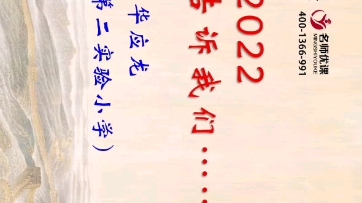 名师优课
MINGSHIYOUKE
400-1366-991
2022
告诉我们……
华应龙
第二实验小学）